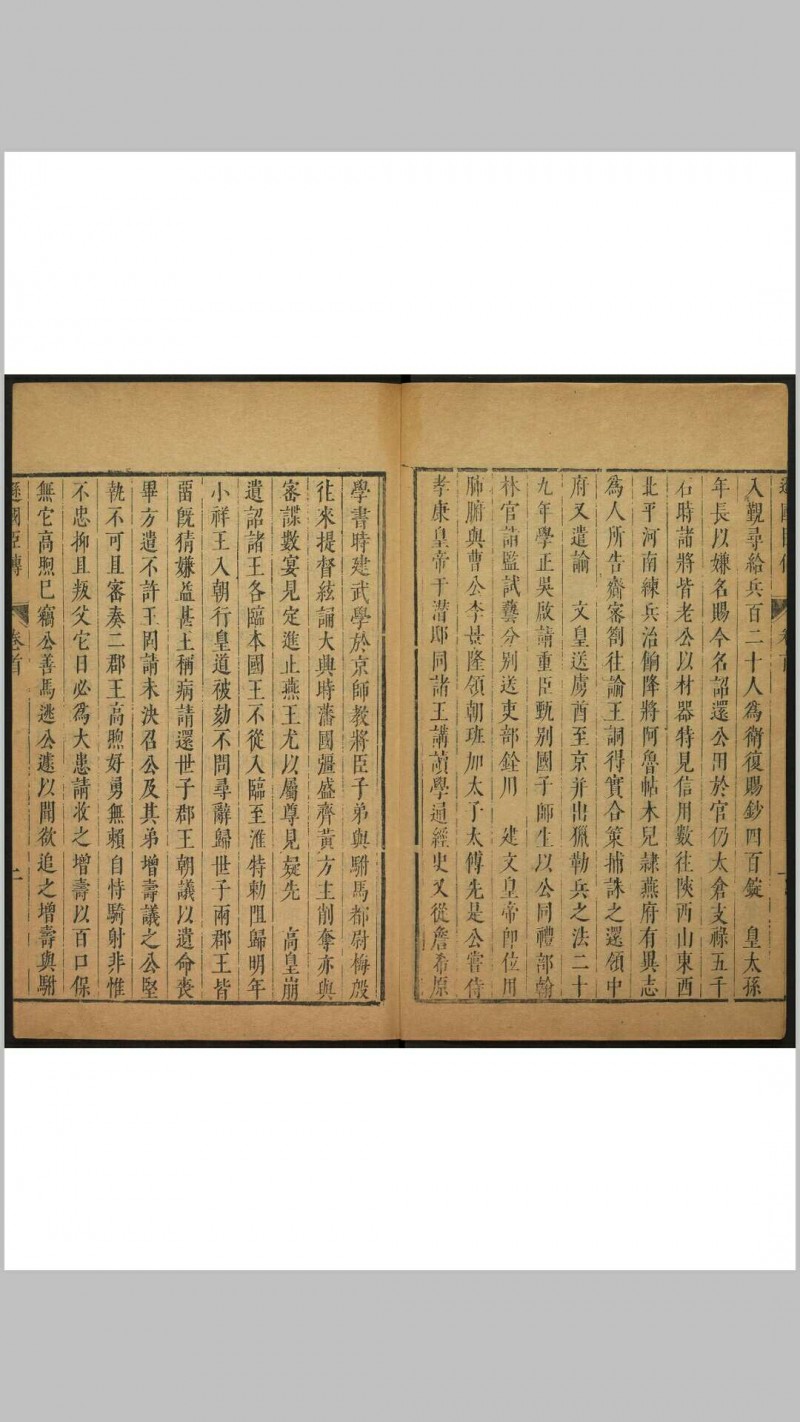 入覲尋給兵百二十人為衛復賜鈔四百錠　皇太孫
年長以嫌名賜今名詔還公用於官仍太倉支祿五千
石時諸將皆老公以材器特見信用數往陝西山東西
北平河南練兵治餉降將阿魯帖木兒隷燕府有異志
為人所告齊審劄往諭王詗得實合策捕誅之還領中
府又遣諭　文皇送虜酋至京并出獵勒兵之法二十
九年學正吳啟請重臣甄別國子師生以公同禮部翰
林官詣監試藝分別送吏部銓用　建文皇帝即位用
肺腑與曹公李景隆領朝班加太子太傅先是公嘗侍
孝康皇帝于潛邸同諸王講讀學通經史又從詹希原
學書時建武學於京師教將臣子弟與駙馬都尉梅殷
往來提督絃誦大興時藩國彊盛齊黃方主削奪亦與
審諜數宴見定進止燕王尤以屬尊見疑先　高皇崩
遺詔諸王各臨本國王不從入臨至淮特勅阻歸明年
小祥王入朝行皇道被劾不問尋辭歸世子兩郡王皆
畱既猜嫌益甚王稱病請還世子郡王朝議以遺命喪
畢方遣不許王固請未決召公及其弟增壽議之公堅
執不可且審奏二郡王高煦好勇無賴自恃騎射非惟
不忠抑且叛父它日必為大患請收之增壽以百口保
無它高煦已竊公善馬逃公遽以聞欲追之增壽與駙
遜國臣傳　卷首　二